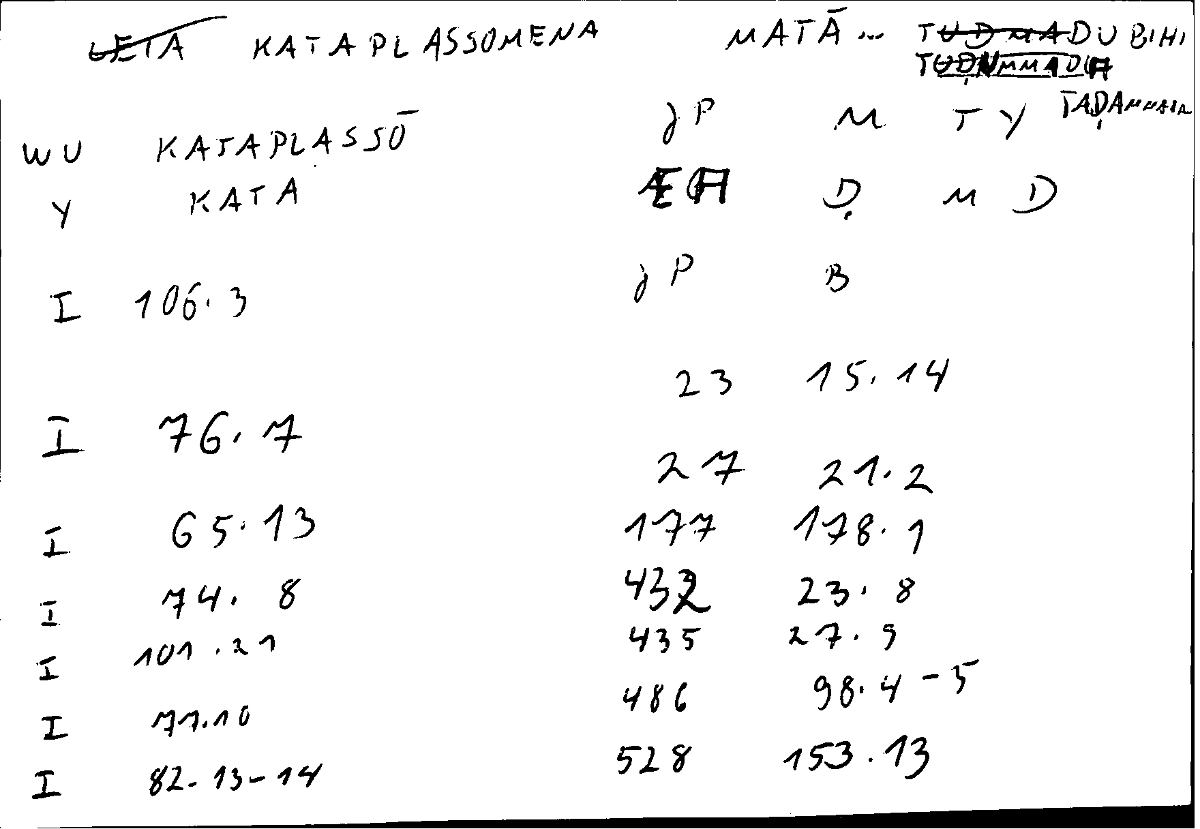 KATAPLASSOMENA MATĀ... DUBIHI
TADAMMADA
WU KATAPLASSŌ JP M T Y
Y KATA Ḍ M D
JP B
I 106.3
23 15.14
I 76.7
27 21.2
I 65.13 177 178.1
I 74.8 432 23.8
I 101.21 435 27.9
I 77.10 486 98.4-5
I 82.13-14 528 153.13